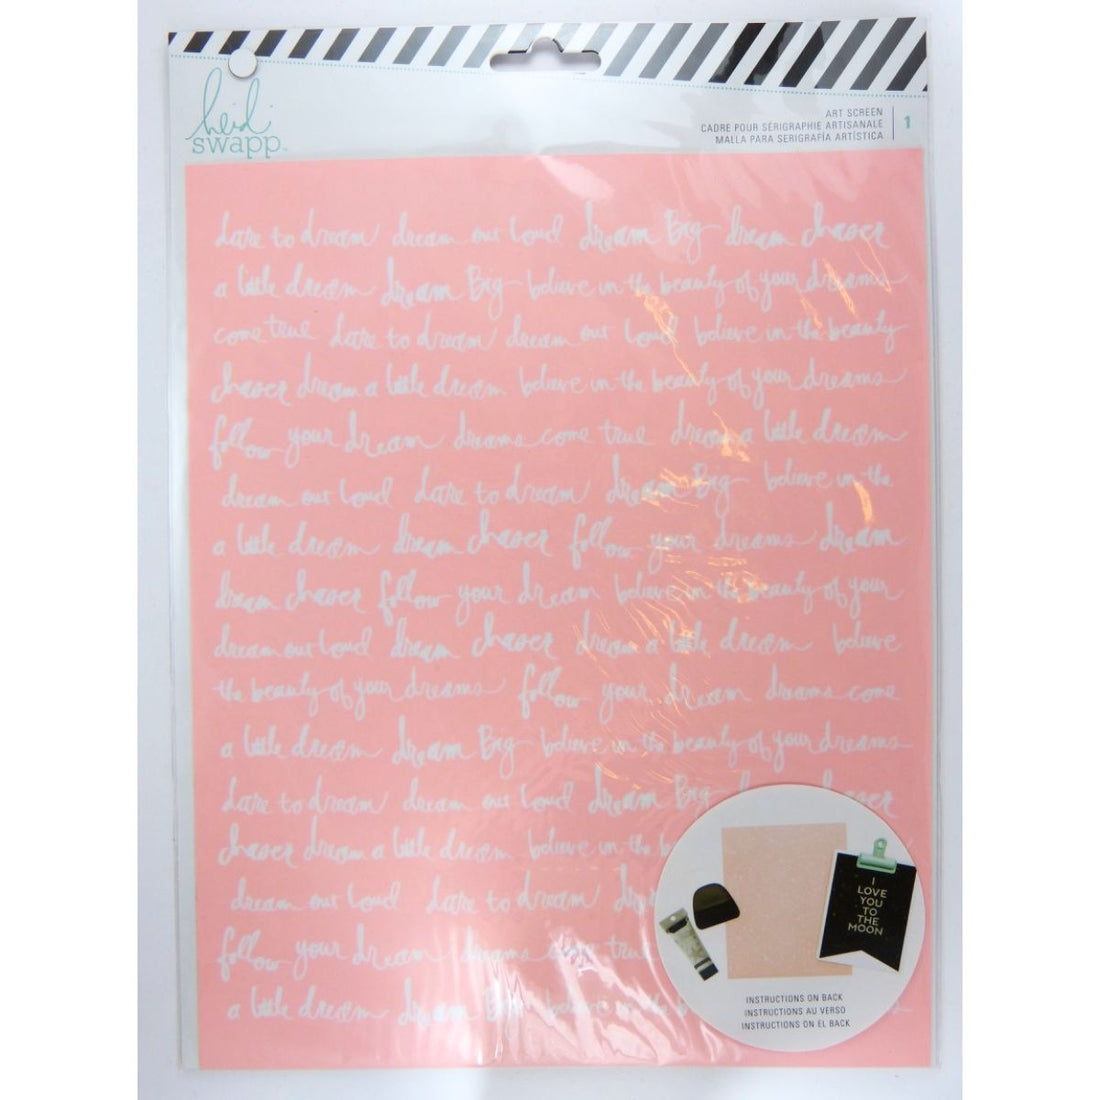 heidi
swapp™
ART SCREEN
CADRE POUR SÉRIGRAPHIE ARTISANALE
MALLA PARA SERIGRAFÍA ARTÍSTICA
1
dare to dream dream out loud dream Big dream chaser
a little dream dream Big believe in the beauty of your dreams
come true dare to dream dream out loud believe in the beauty
chaser dream a little dream believe in the beauty of your dreams
follow your dream dreams come true dream a little dream
dream out loud dare to dream dream Big believe in the
a little dream dream chaser follow your dreams dream
dream chaser follow your dream believe in the beauty of your
dream out loud dream chaser dream a little dream believe
the beauty of your dreams follow your dream dreams come
a little dream dream Big believe in the beauty of your dreams
dare to dream dream out loud dream Big chaser
chaser dream a little dream believe in the
dream out loud dare to dream
follow your dream dreams come true
a little dream dream Big believe in the
I
LOVE
YOU
TO
THE
MOON
INSTRUCTIONS ON BACK
INSTRUCTIONS AU VERSO
INSTRUCTIONS ON EL BACK